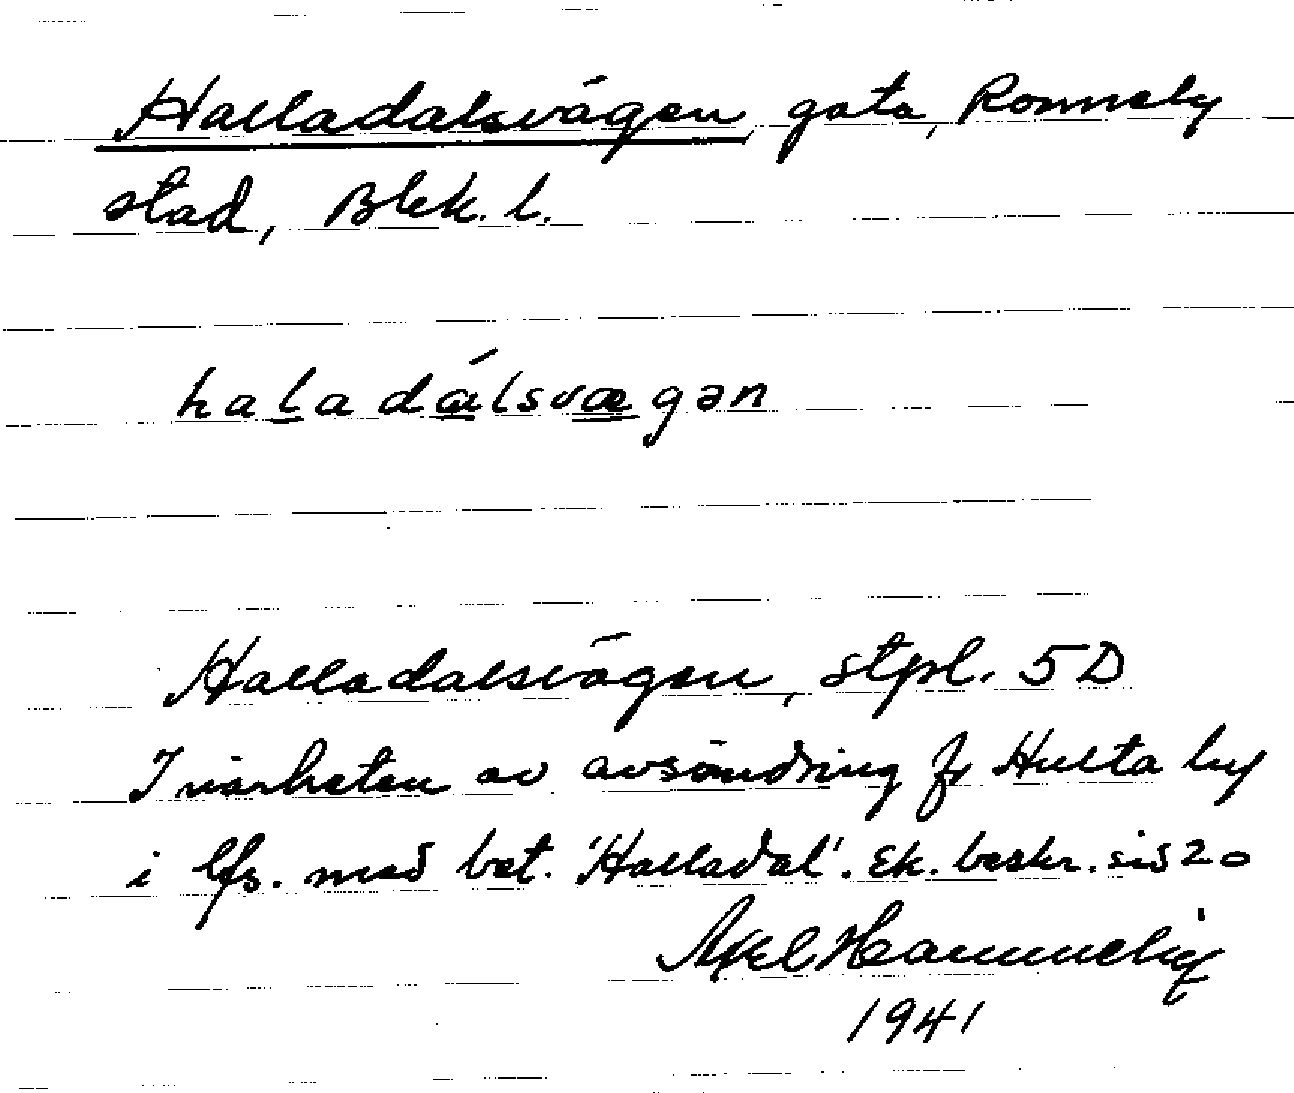 Halladalsvägen, gata, Ronneby
stad, Blek. l.
haladálsvægən
Halladalsvägen, stpl. 5D
I närheten av avsöndring fr Hulta by
i lfs. med bet. 'Halladal'. Ek. beskr. sid 20
Axel Hammelig
1941